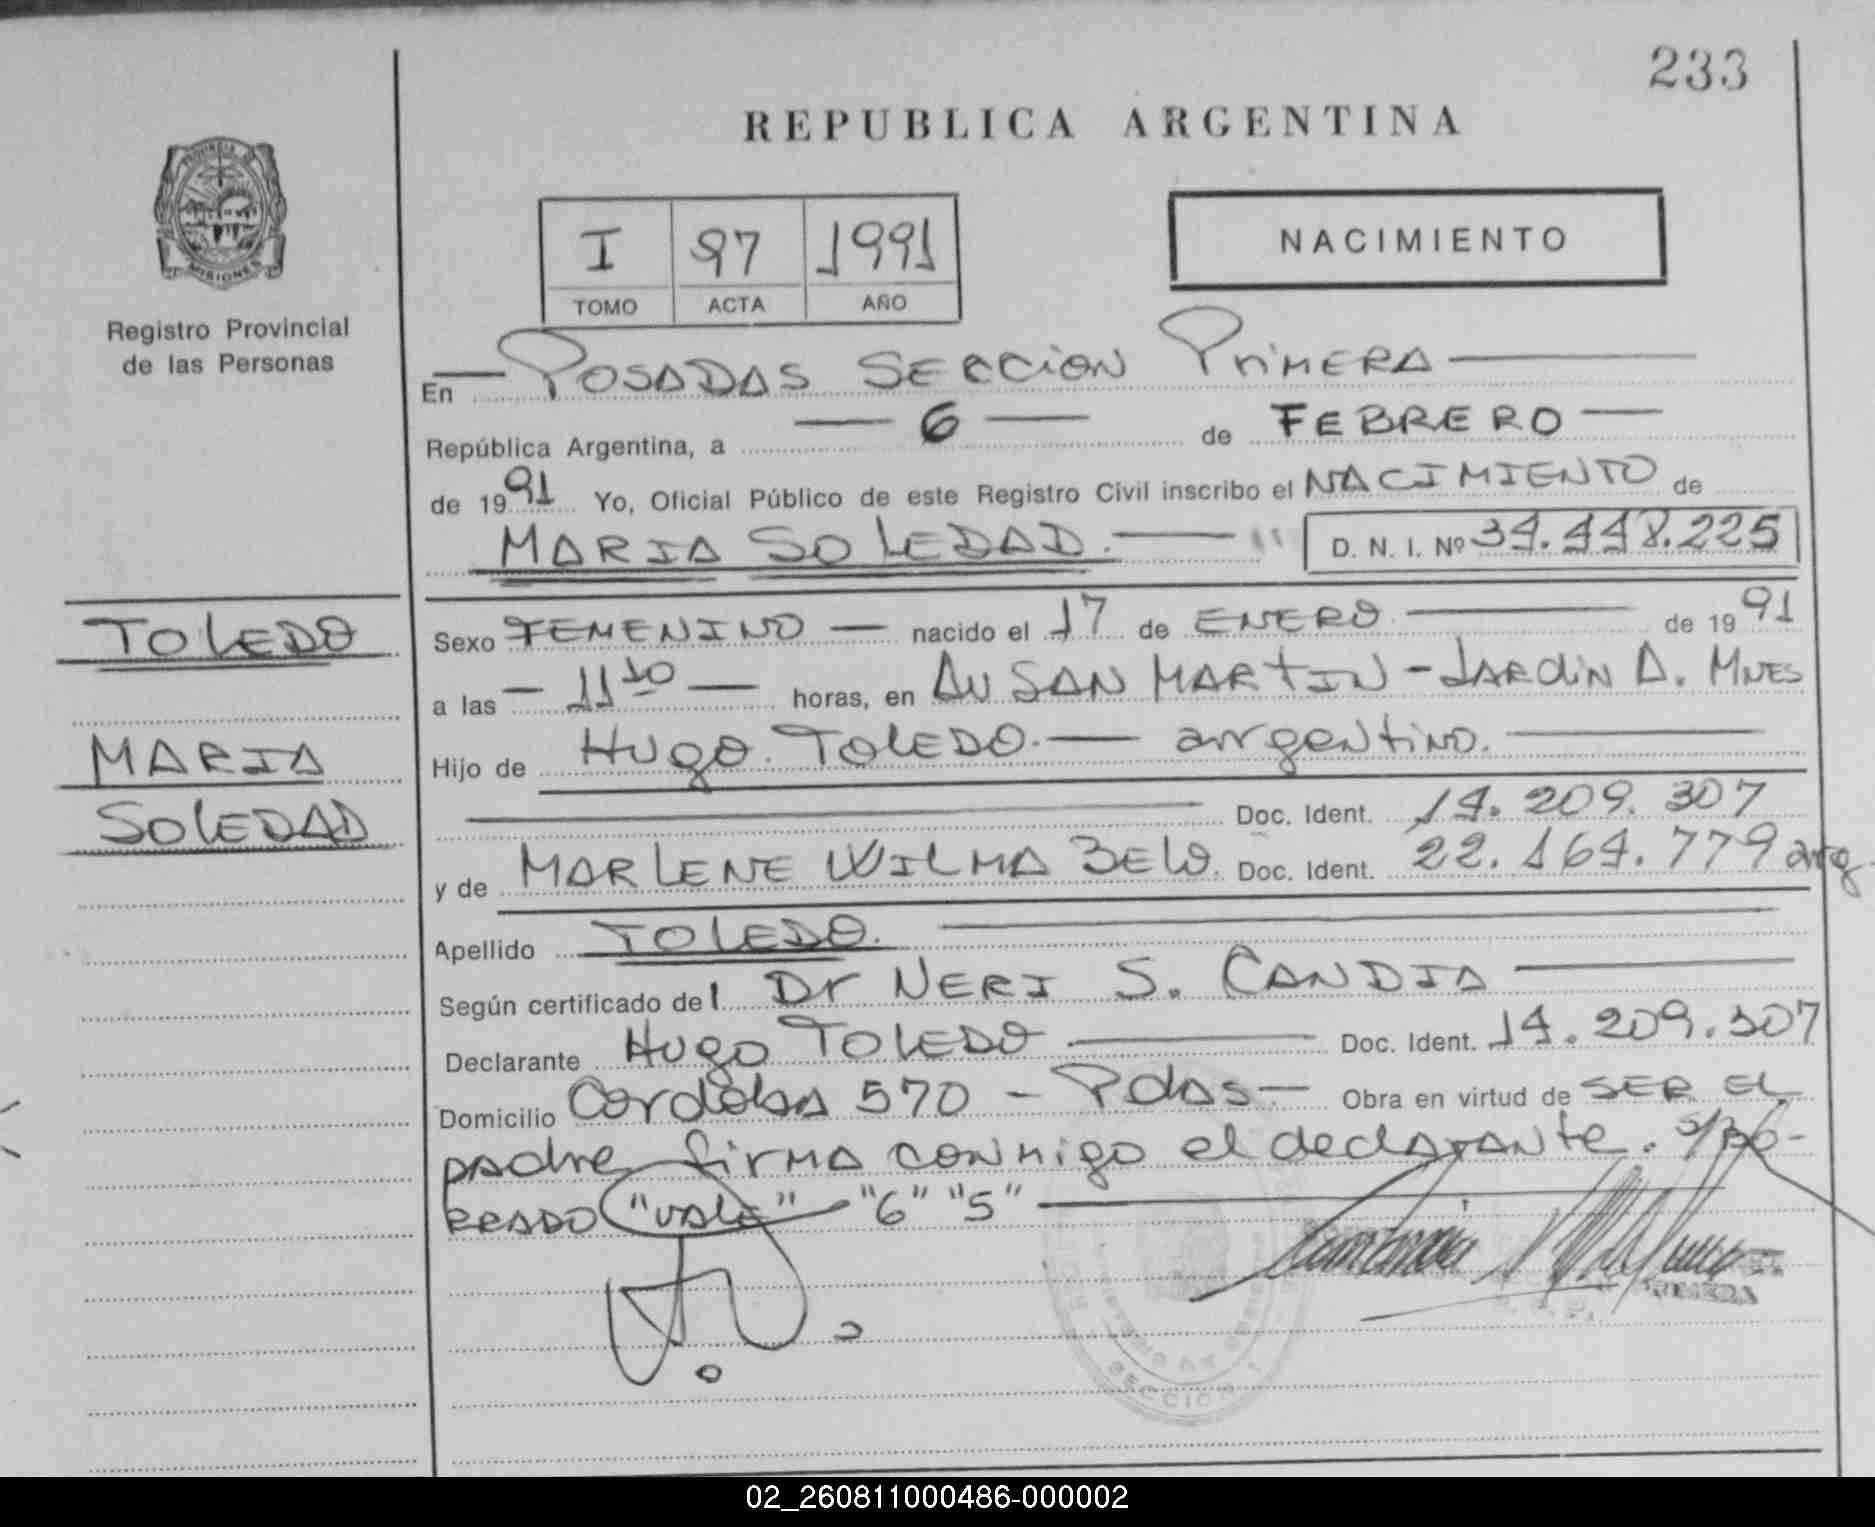 233
REPUBLICA ARGENTINA
PROVINCIA DE
MISIONES
Registro Provincial
de las Personas
I 97 1991
TOMO ACTA AÑO
NACIMIENTO
En POSADAS SECCION PRIMERA
República Argentina, a 6 de FEBRERO
de 1991 Yo, Oficial Público de este Registro Civil inscribo el NACIMIENTO de
MARIA SOLEDAD. D. N. I. Nº 34.448.225
TOLEDO
MARIA
SOLEDAD
Sexo FEMENINO nacido el 17 de ENERO de 1991
a las 11 horas, en AV SAN MARTIN - JARDIN A. MNES
Hijo de HUGO TOLEDO. argentino.
Doc. Ident. 14.209.307
y de MARLENE WILMA BELO. Doc. Ident. 22.164.779 arg
Apellido TOLEDO.
Según certificado del Dr NERI S. CANDIA
Declarante HUGO TOLEDO Doc. Ident. 14.209.307
Domicilio Cordoba 570 - Pdas - Obra en virtud de SER EL
padre firma conmigo el declarante. s/bo-
rrado "vale" "6" "5"
02_260811000486-000002